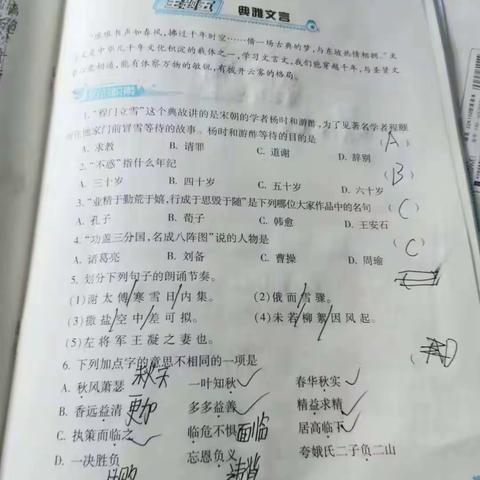 典雅文言
"琅琅书声如春风，拂过十年时空……借一场古典的梦，与东坡热情相拥。"文
言文是中华几千年文化积淀的载体之一，学习文言文，我们能穿越千年，与圣贤文
能有体察万物的敏锐，有拨开云雾的格局。
1. "程门立雪"这个典故讲的是宋朝的学者杨时和游酢，为了见著名学者程颐
在他家门前冒雪等待的故事。杨时和游酢等待的目的是 ( A )
A. 求教 B. 请罪 C. 道谢 D. 辞别
2. "不惑"指什么年纪 ( B )
A. 三十岁 B. 四十岁 C. 五十岁 D. 六十岁
3. "业精于勤荒于嬉，行成于思毁于随"是下列哪位大家作品中的名句 ( C )
A. 孔子 B. 荀子 C. 韩愈 D. 王安石
4. "功盖三分国，名成八阵图"说的人物是 ( C )
A. 诸葛亮 B. 刘备 C. 曹操 D. 周瑜
5. 划分下列句子的朗诵节奏。
(1)谢太傅/寒雪日/内集。 (2)俄而/雪骤。
(3)撒盐/空中/差可拟。 (4)未若/柳絮/因风起。
(5)左将军王凝之妻也。
6. 下列加点字的意思不相同的一项是 ( D )
A. 秋风萧瑟 秋天 一叶知秋 ✓ 春华秋实 ✓
B. 香远益清 更加 多多益善 ✓ 精益求精 ✓
C. 执策而临之 ✓ 临危不惧 面临 居高临下 ✓
D. 一决胜负 忘恩负义 夸娥氏二子负二山